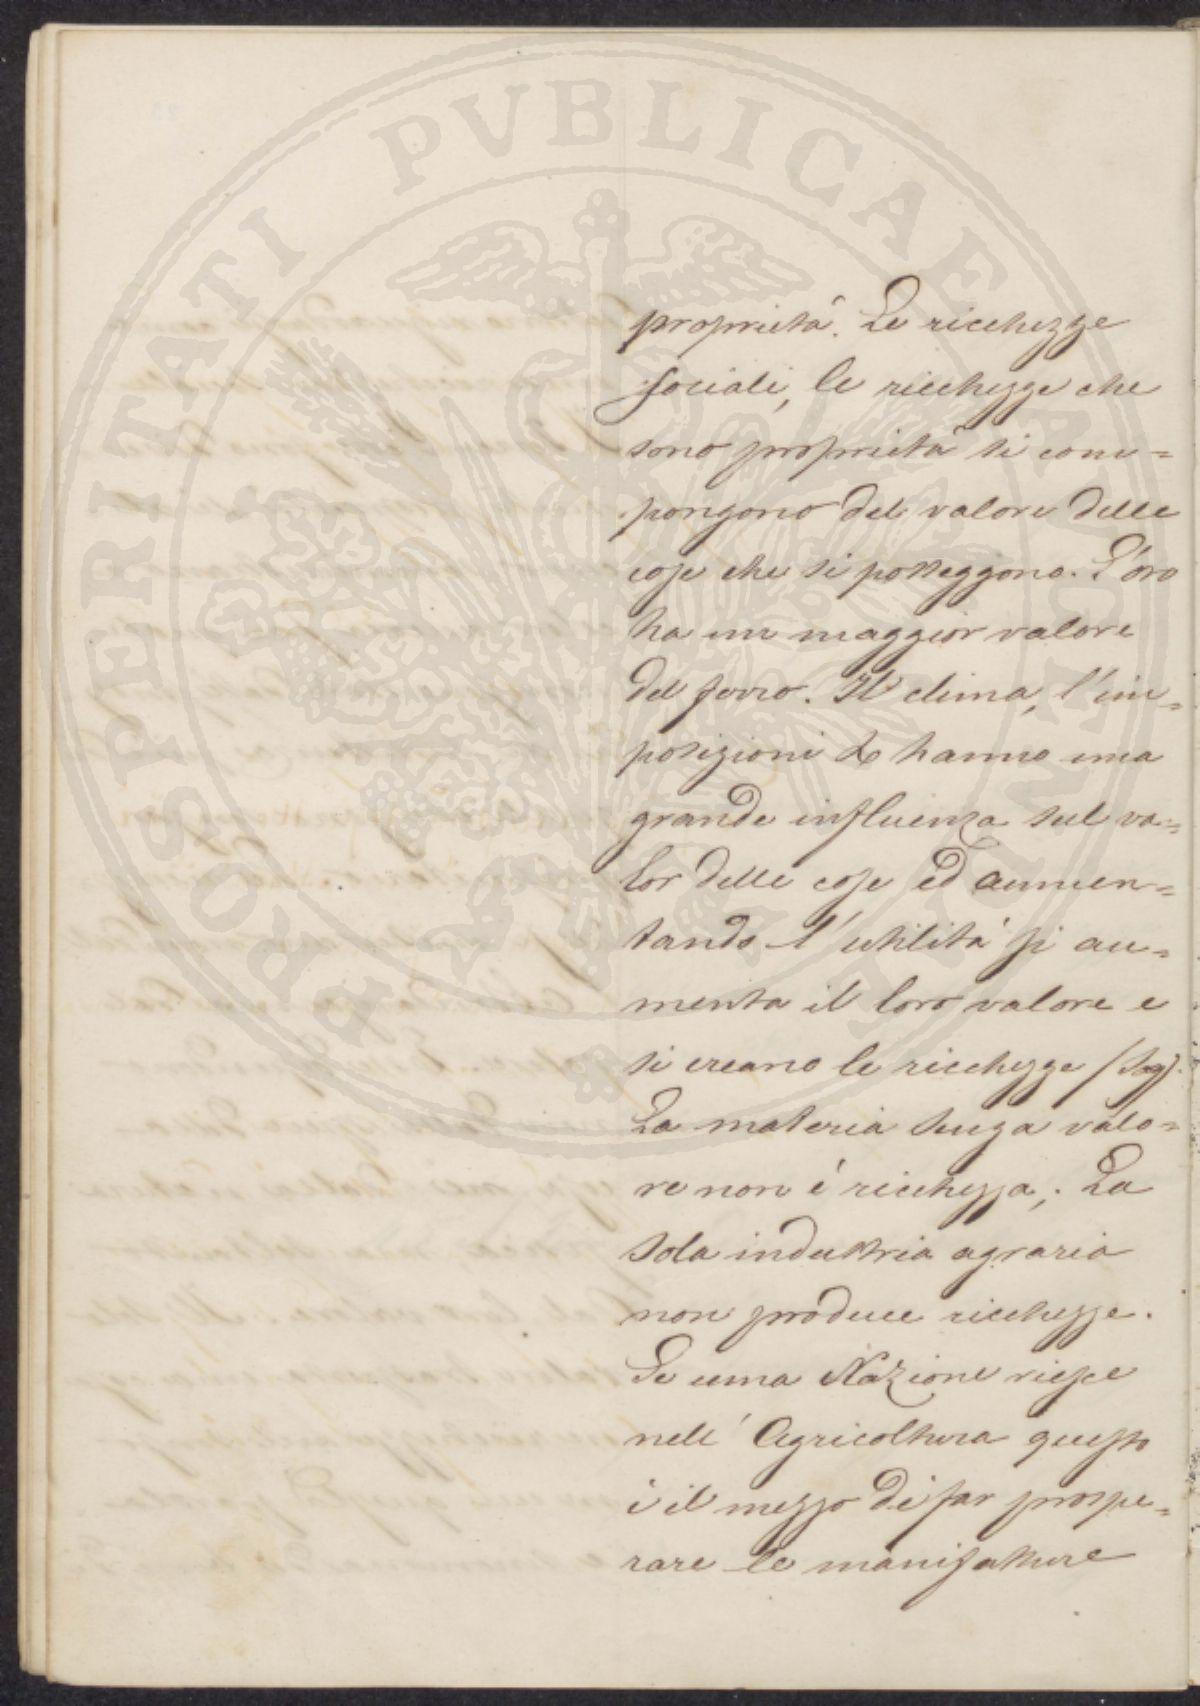 PROSPERITATI PVBLICAE AVGENDAE
proprietà. Le ricchezze
sociali, le ricchezze che
sono proprietà si com=
pongono del valore delle
cose che si posseggono. L'oro
ha un maggior valore
del ferro. Il clima, l'im=
posizioni &c hanno una
grande influenza sul va=
lor delle cose ed aumen=
tando l'utilità si au=
menta il loro valore e
si creano le ricchezze (Say).
La materia senza valo=
re non è ricchezza; La
sola industria agraria
non produce ricchezze.
Se una Nazione riesce
nell' Agricoltura questo
è il mezzo di far prospe=
rare le manifatture